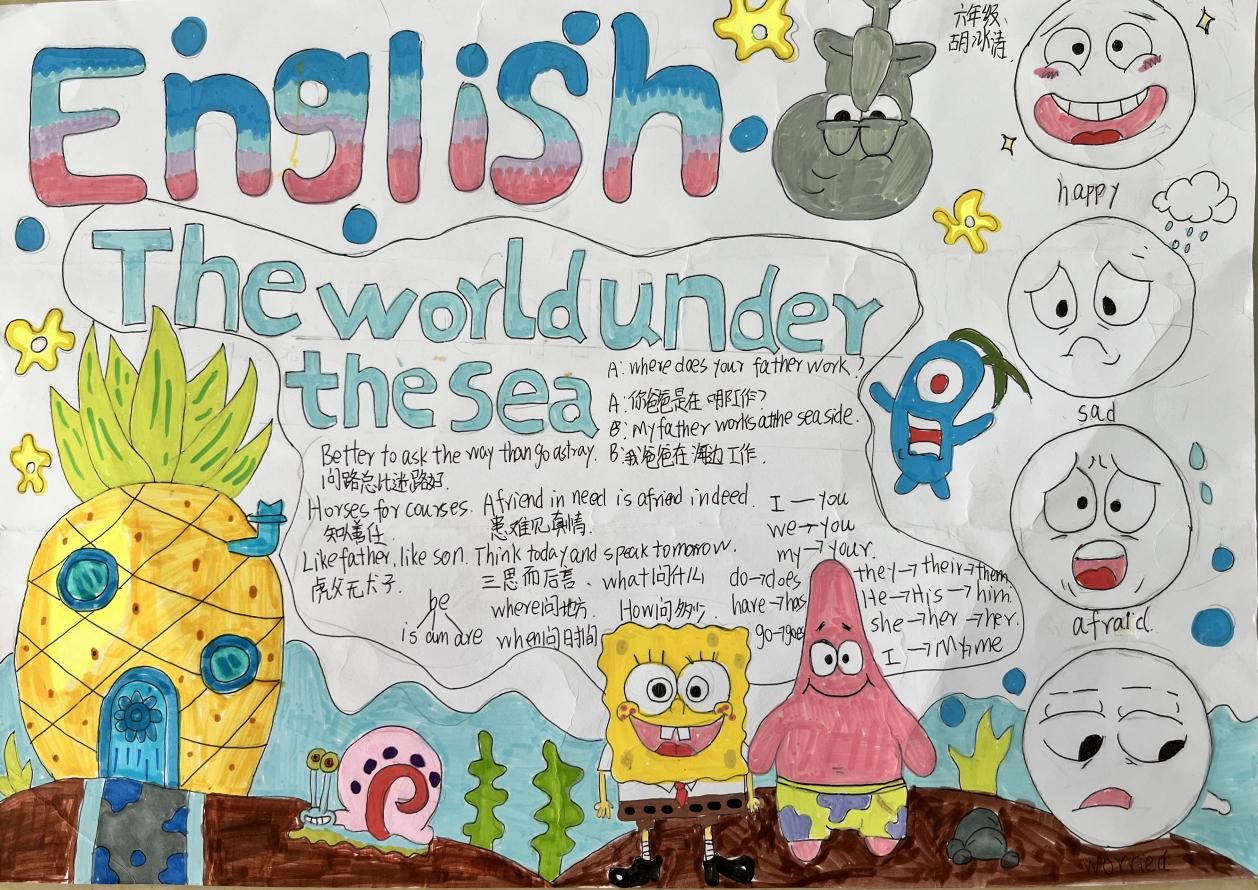 English
六年级
胡冰清
happy
The world under
the sea
sad
A: where does your father work?
A: 你爸爸是在哪工作?
B: My father works at the seaside.
B: 我爸爸在海边工作.
Better to ask the way than go astray.
问路总比迷路好.
Horses for courses. A friend in need is a friend indeed.
知人善任 患难见真情.
Like father, like son. Think today and speak tomorrow.
虎父无犬子. 三思而后言.
I — you
we → you
my → your.
what问什么
where问地方. How问多少.
when问日期
be
is am are
do → does
have → has
go → goes
they → their → them.
He → His → him
she → her → her.
I → My → me
afraid.
worried